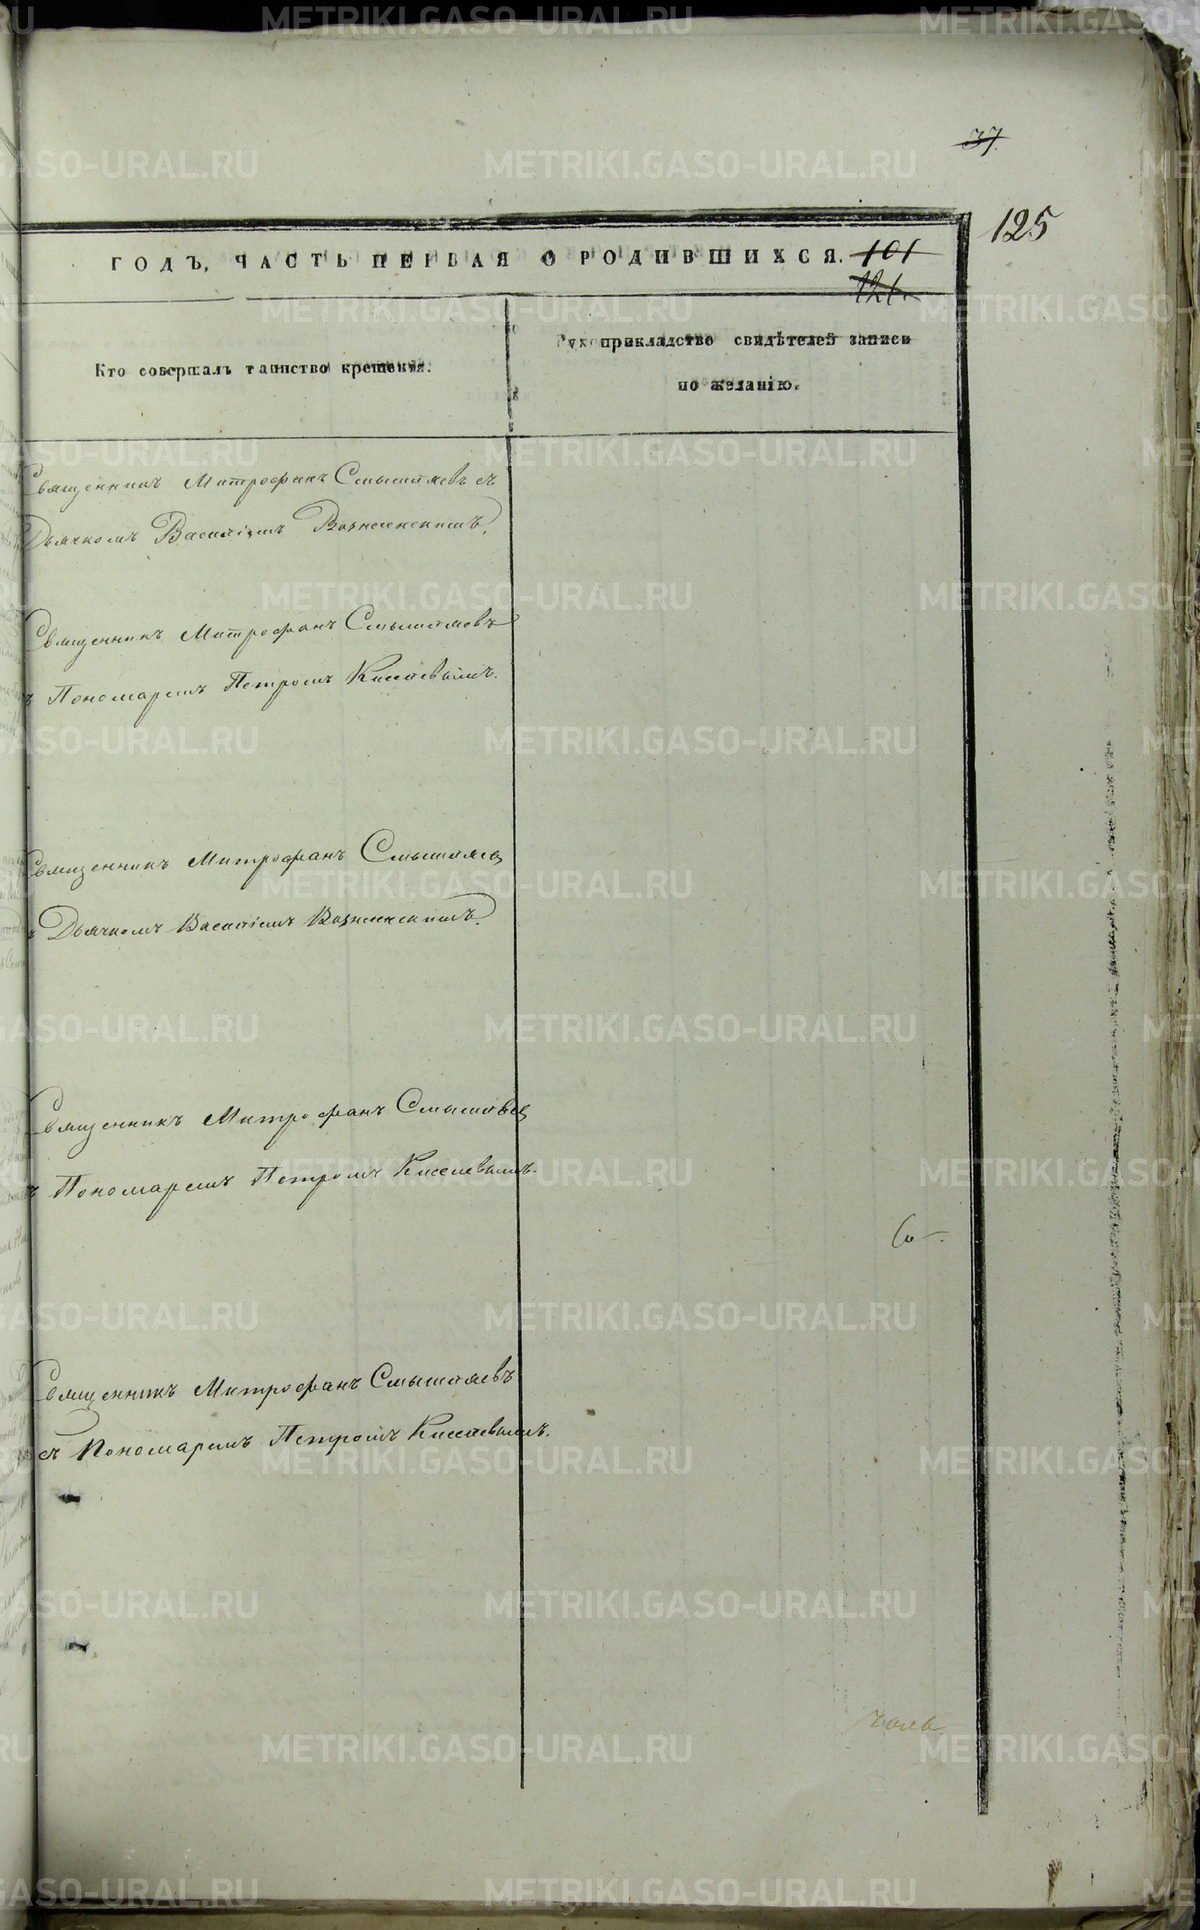 37.
125
ГОДЪ, ЧАСТЬ ПЕРВАЯ О РОДИВШИХСЯ. 101
121.
Кто совершалъ таинство крещенія.
Рукоприкладство свидѣтелей записи
по желанію.
Священникъ Митрофанъ Смышляевъ съ
Дьячкомъ Василіемъ Вознесенскимъ.
Священникъ Митрофанъ Смышляевъ
съ Пономаремъ Петромъ Киселевымъ.
Священникъ Митрофанъ Смышляев
съ Дьячкомъ Василіемъ Вознесенскимъ.
Священникъ Митрофанъ Смышляев
съ Пономаремъ Петромъ Киселевымъ.
Священникъ Митрофанъ Смышляевъ
съ Пономаремъ Петромъ Киселевымъ.
METRIKI.GASO-URAL.RU